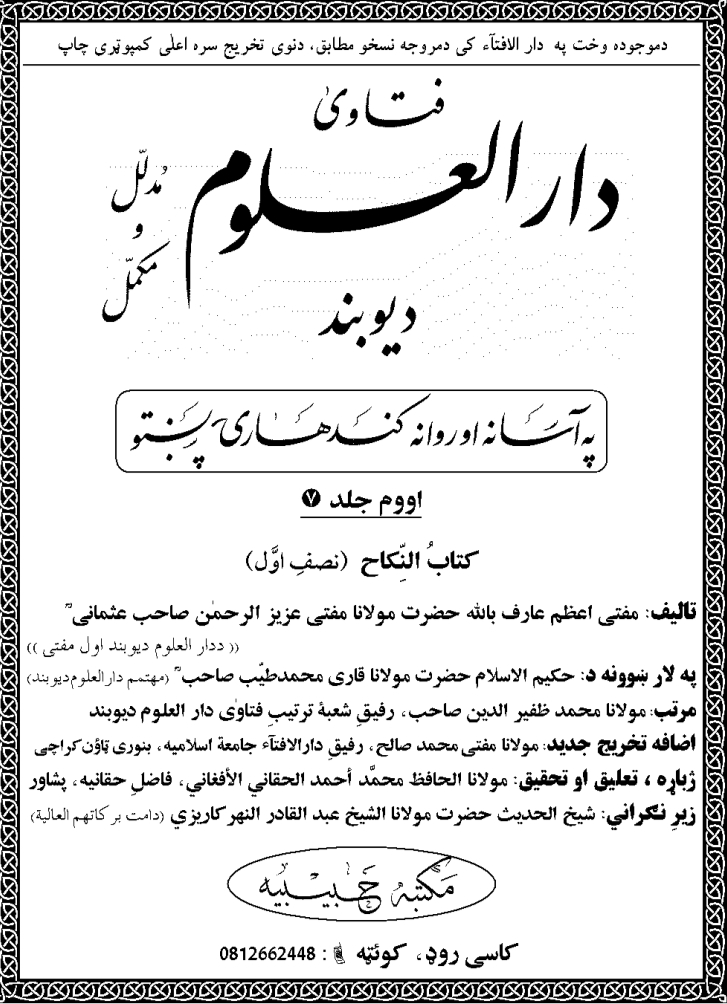 دموجوده وخت په دار الافتآء کی دمروجه نسخو مطابق، دنوی تخریج سره اعلٰی کمپوټری چاپ
فتاویٰ
دار العلوم
مُدلّل
و
مکمّل
دیوبند
په آسانه او روانه کندهاری پښتو
اووم جلد ۷
کتابُ النِّکاح (نصفِ اوَّل)
تالیف: مفتی اعظم عارف بالله حضرت مولانا مفتی عزیز الرحمٰن صاحب عثمانیؒ
(( ددار العلوم دیوبند اول مفتی ))
په لار ښوونه د: حکیم الاسلام حضرت مولانا قاری محمدطیّب صاحبؒ (مهتمم دارالعلوم دیوبند)
مرتب: مولانا محمد ظفیر الدین صاحب، رفیقِ شعبۀ ترتیبِ فتاوٰی دار العلوم دیوبند
اضافه تخریج جدید: مولانا مفتی محمد صالح، رفیقِ دارالافتآء جامعة اسلامیه، بنوری ټاؤن کراچی
ژباړه ، تعلیق او تحقیق: مولانا الحافظ محمَّد أحمد الحقاني الأفغاني، فاضلِ حقانیه، پشاور
زیرِ نګراني: شیخ الحدیث حضرت مولانا الشیخ عبد القادر النهرکاریزي (دامت برکاتهم العالیة)
مکتبہ حبیبیه
کاسی روډ، کوئټه : 0812662448